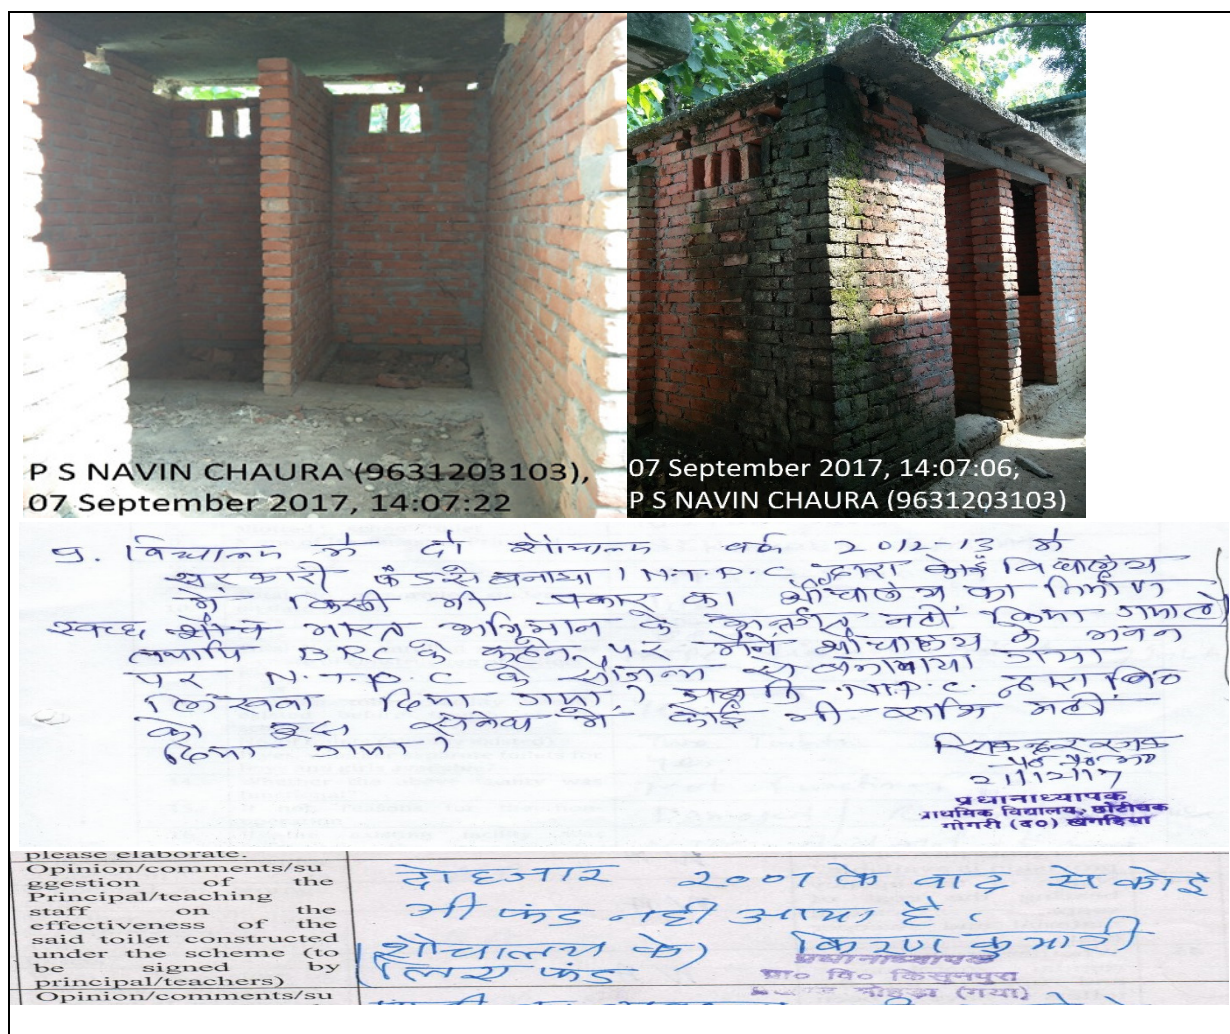 P S NAVIN CHAURA (9631203103),
07 September 2017, 14:07:22
07 September 2017, 14:07:06,
P S NAVIN CHAURA (9631203103)
9. विद्यालय में दो शौचालय वर्ष 2012-13 में
सरकारी फंड से बनाया। N.T.P.C द्वारा कोई विद्यालय
में किसी भी प्रकार का शौचालय का निर्माण
स्वच्छ भारत अभियान के अन्तर्गत नहीं किया गया है।
तथापि BRC के कहने पर मैंने शौचालय के भवन
पर N.T.P.C के सौजन्य से बनवाया गया
लिखवा दिया गया। जबकि N.T.P.C. द्वारा
को इस संबंध में कोई भी राशि नहीं
दिया गया।
21/12/17
प्रधानाध्यापक
प्राथमिक विद्यालय, छोटीचक
गोगरी (द०) खगड़िया
please elaborate.
Opinion/comments/su
ggestion of the
Principal/teaching
staff on the
effectiveness of the
said toilet constructed
under the scheme (to
be signed by
principal/teachers)
दो हजार २००७ के बाद से कोई
भी फंड नहीं आया है।
(शौचालय के) किरण कुमारी
लिए फंड
प्रधानाध्यापक
प्रा० वि० किसुनपुरा
मोहड़ा (गया)
Opinion/comments/su